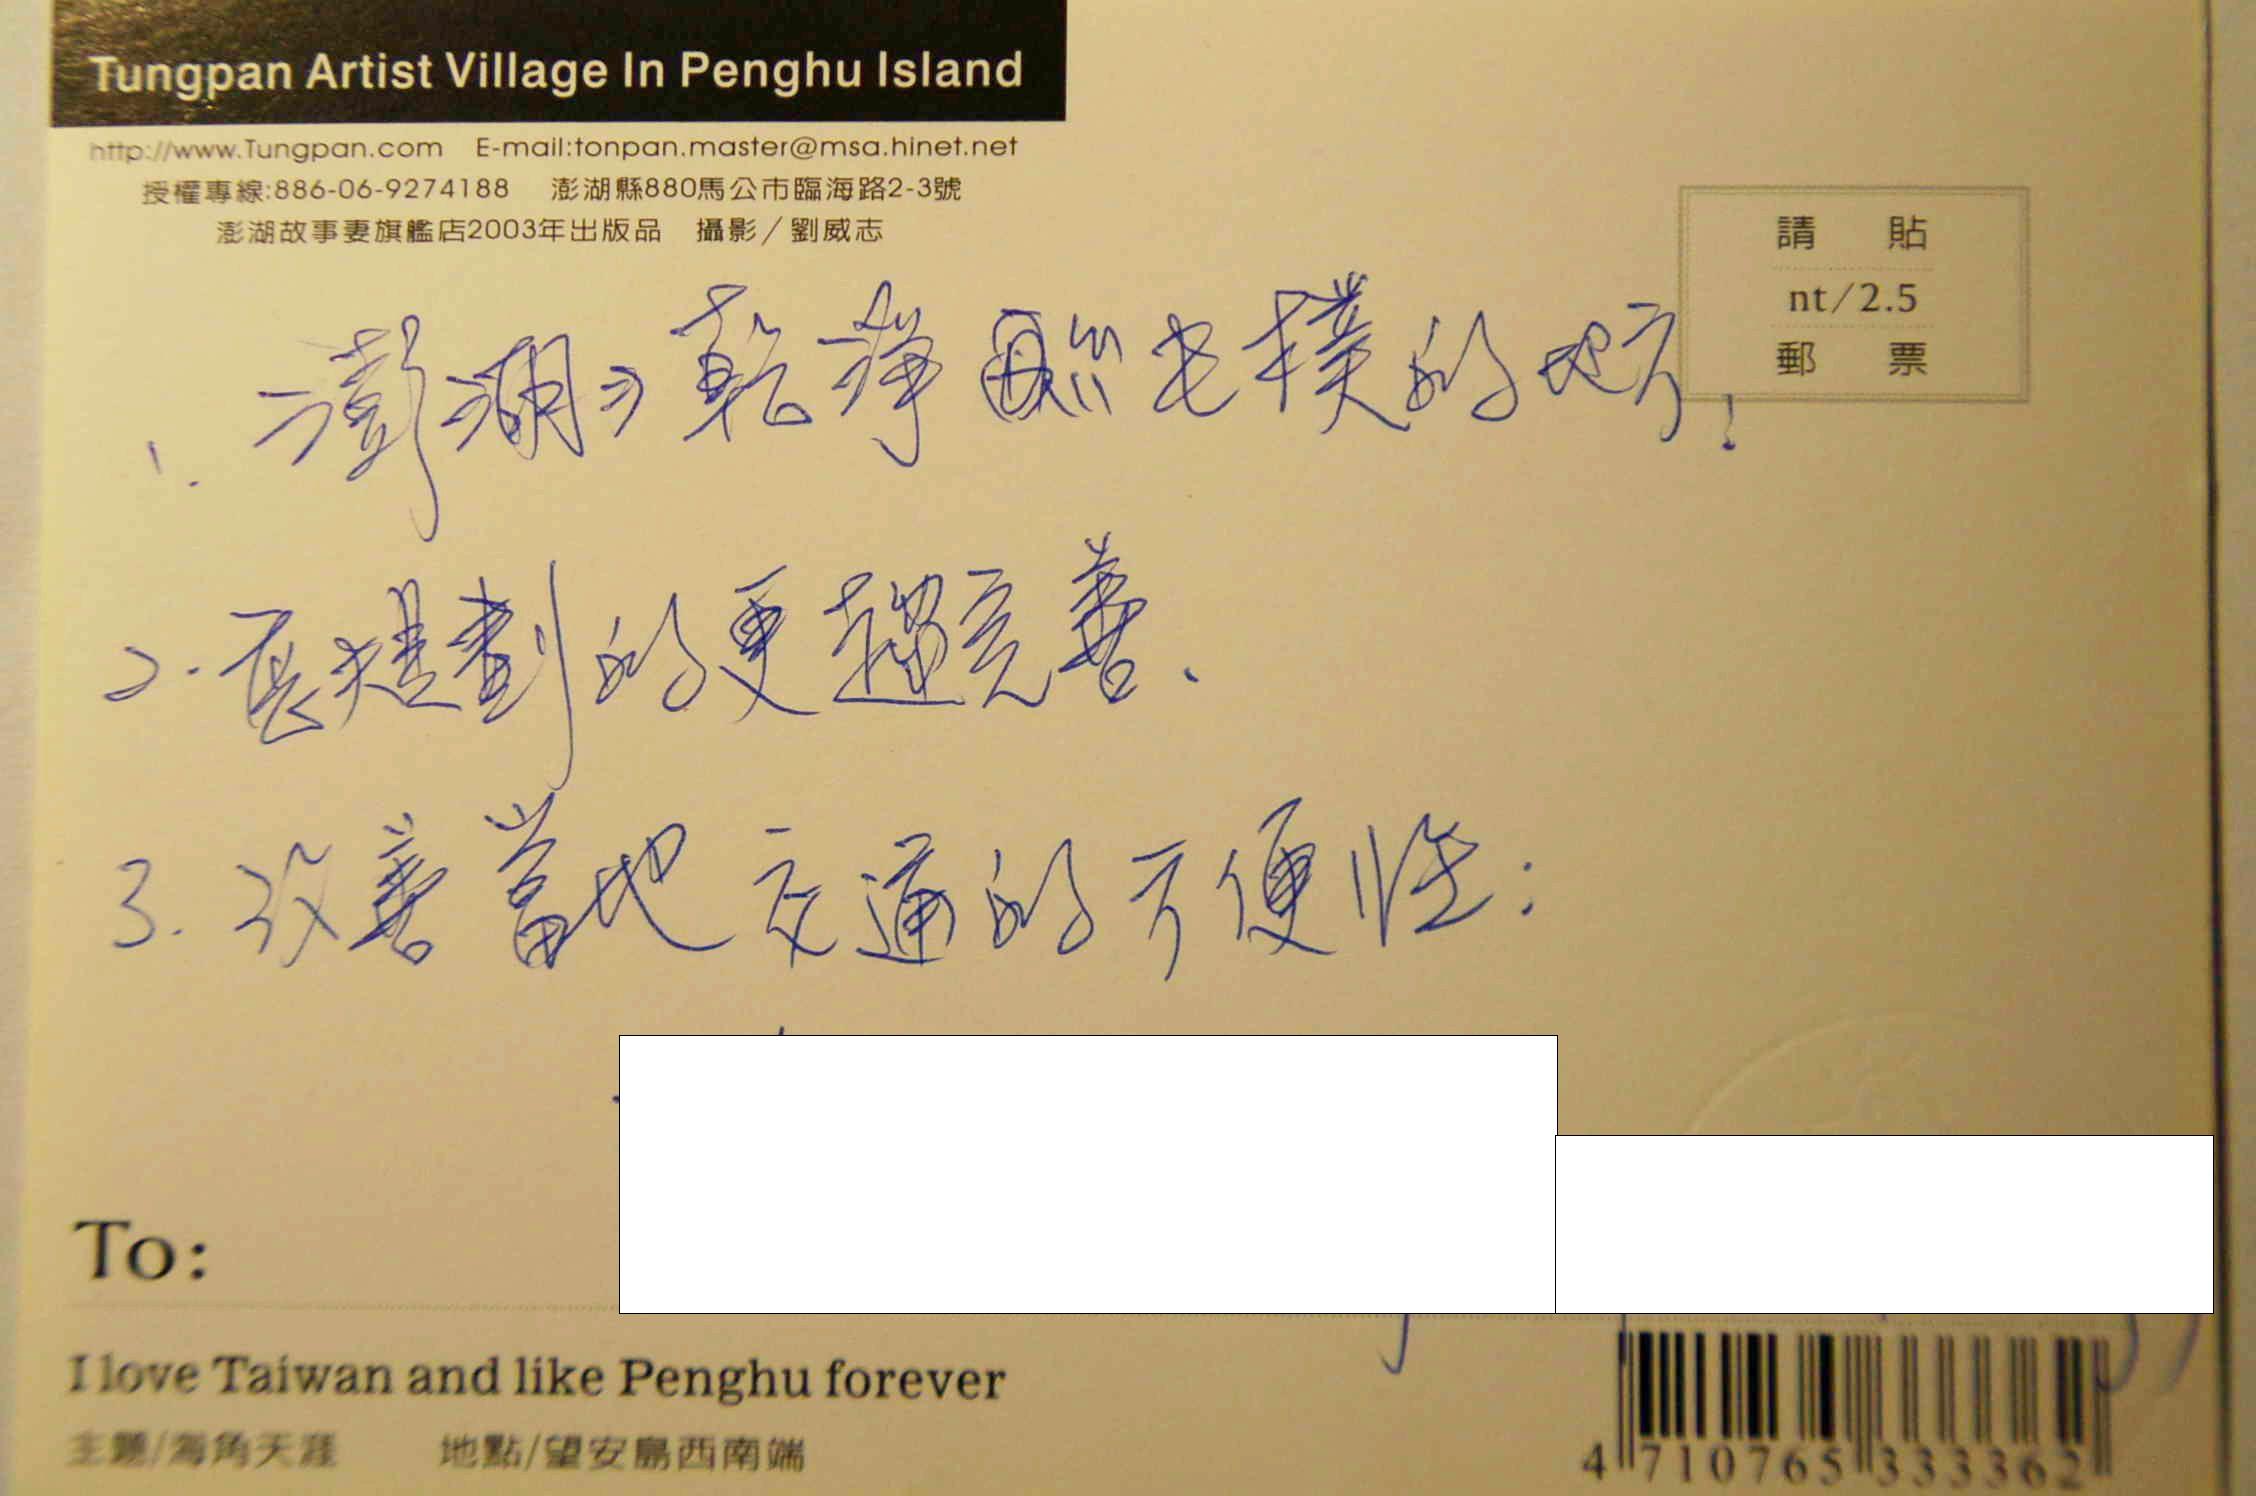 Tungpan Artist Village In Penghu Island
http://www.Tungpan.com E-mail:tonpan.master@msa.hinet.net
授權專線:886-06-9274188 澎湖縣880馬公市臨海路2-3號
澎湖故事妻旗艦店2003年出版品 攝影/劉威志
請貼
nt/2.5
郵票
1. 澎湖乾淨 樸的地方!
2. 規劃的更趨完善.
3. 改善當地交通的方便性:
To:
I love Taiwan and like Penghu forever
主題/海角天涯 地點/望安島西南端
4 710765 333362